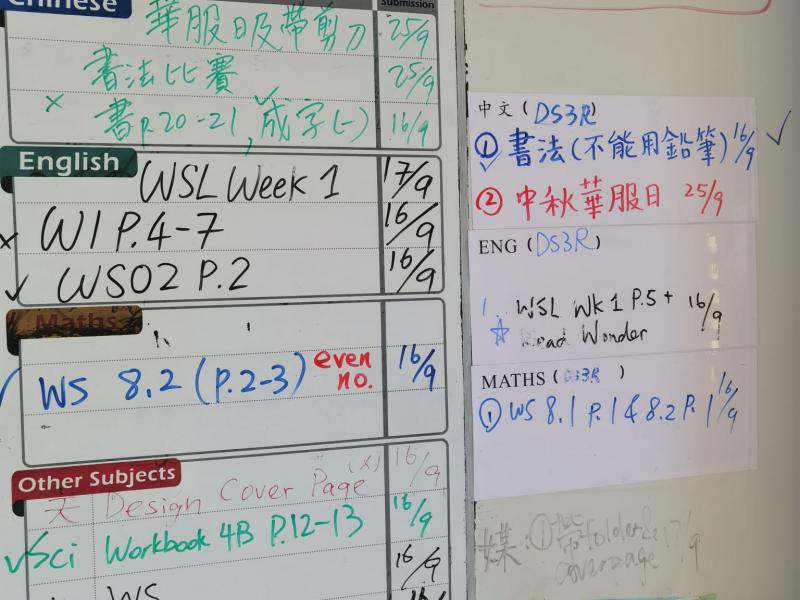 Chinese
Submission
華服日及帶剪刀 25/9
書法比賽 25/9
× 書P.20-21, 成字(一) 16/9
English
WSL Week 1 17/9
× W1 P.4-7 16/9
✓ WS02 P.2 16/9
Maths
✓ WS 8.2 (P.2-3) even no. 16/9
Other Subjects
Design Cover Page (×) 16/9
✓ Sci Workbook 4B P.12-13 16/9
WS 16/9
16/
中文 (DS3R)
① 書法(不能用鉛筆) 16/9 ✓
② 中秋華服日 25/9
ENG (DS3R)
1. WSL WK 1 P.5 + 16/9
☆ Wonder
MATHS (DS3R)
① WS 8.1 P.1 & 8.2 P.1 16/9
媒:① 帶folder& 17/9
coverpage